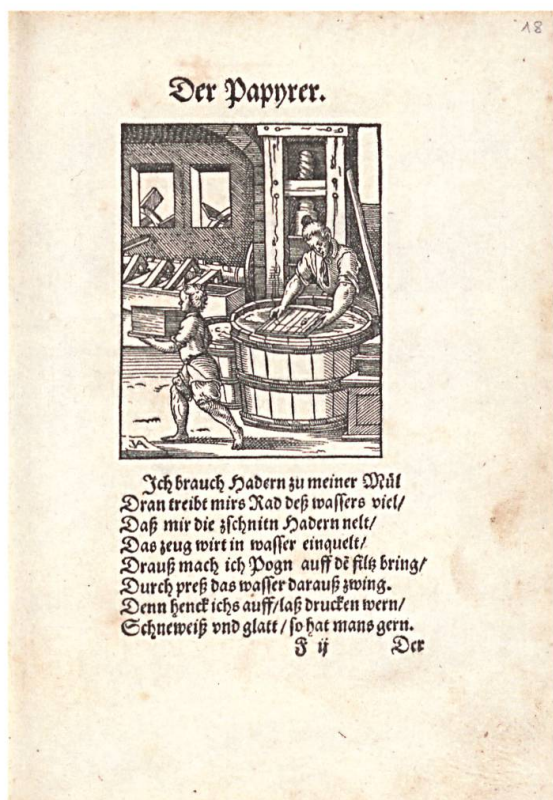 18
Der Papyrer.
IA
Ich brauch Hadern zu meiner Mül
Dran treibt mirs Rad deß wassers viel/
Daß mir die zschnitn Hadern nelt/
Das zeug wirt in wasser einquelt/
Drauß mach ich Pogn auff dē filtz bring/
Durch preß das wasser darauß zwing.
Denn henck ichs auff/laß drucken wern/
Schneweiß vnd glatt/so hat mans gern.
F ij Der